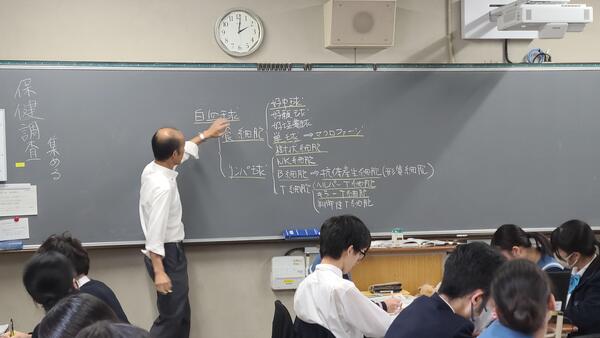 保健調査
集める
白血球
食細胞
好中球
好酸球
好塩基球
単球 → マクロファージ
樹状細胞
リンパ球
NK細胞
B細胞 ⇒ 抗体産生細胞(形質細胞)
T細胞
ヘルパーT細胞
キラーT細胞
制御性T細胞